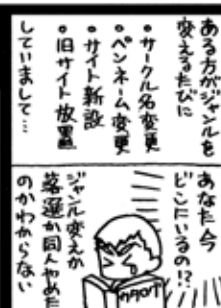 ある方がジャンルを
変えるたびに
•サークル名変更
•ペンネーム変更
•サイト新設
•旧サイト放置
していまして…
あなた今
どこにいるの!?
ジャンル変えか
落選か同人やめた
のかわからない
カタログ